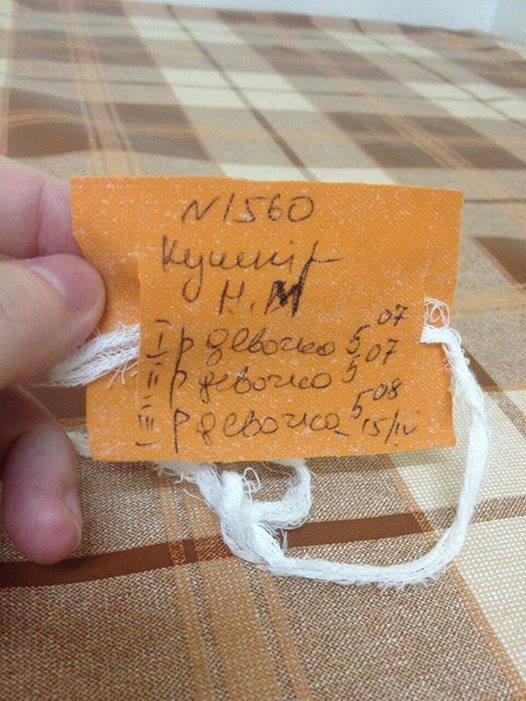 N1560
Кушнір
Н.М
I р девочка 5 07
II р девочка 5 07
III р девочка 5 08 15/IV